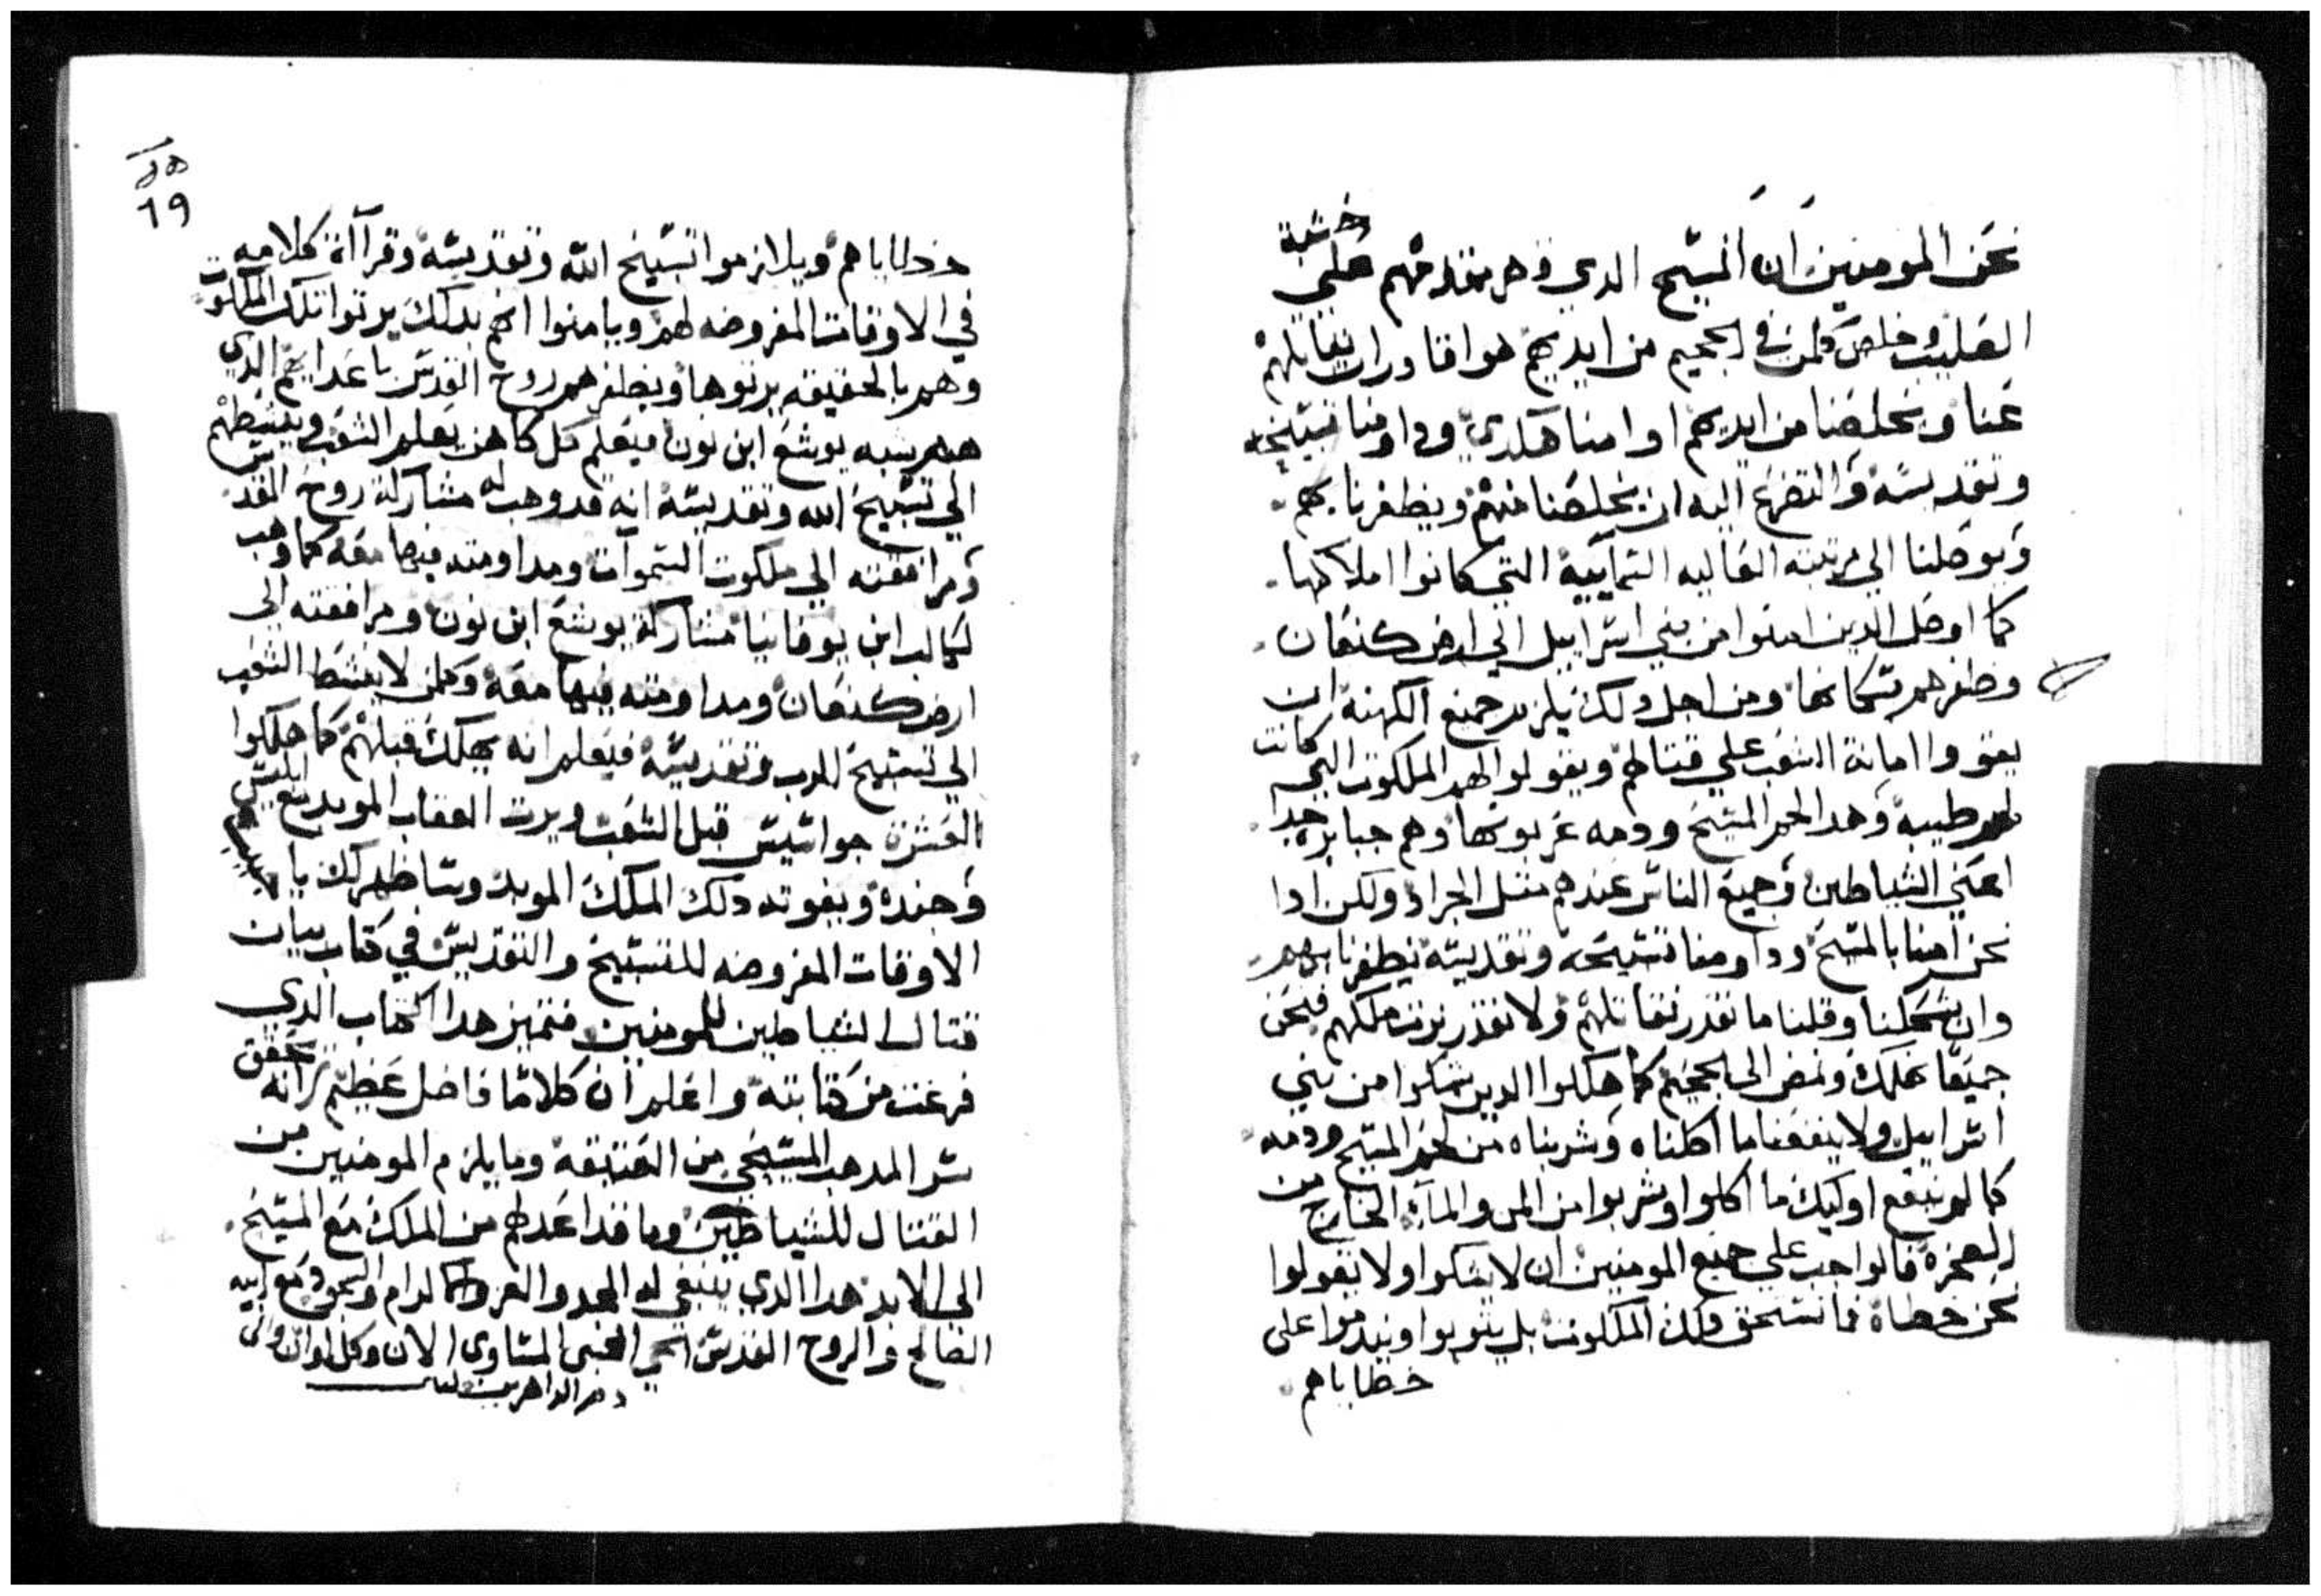 نحن المومنين ان المسيح الدي قهرهم قدامهم علي خشبة
الصليب وخلص كلمن في الجحيم من ايديهم هو اقادر ان يقاتلهم
عنا ويخلصنا من ايديهم ادا امنا هكدي وداومنا تسبيحه
وتقديسه والتضرع اليه ان يخلصنا منهم ويظفرنا بهم
ويوصلنا الي مرتبته العاليه السماييه التي كانوا املاكها
كما اوصل الدين امنوا من بني اسراييل الي ارض كنعان
وظفرهم بسكانها ومن اجل دلك يلزم جميع الكهنه ان
يقووا امانة الشعب علي قتالهم ويقولوا لهم الملكوت التي كانت
لهم طيبه وهدا لحم المسيح ودمه عربونها وهم جبابره جدا
اعني الشياطين وجميع الناس عندهم متل الجراد ولكن ادا
نحن امنا بالمسيح وداومنا تسبيحه وتقديسه يظفرنا بهم
وان شككنا وقلنا ما نقدر نقاتلهم ولا نقدر نرت ملكهم فنحن
جميعا نهلك ونمضي الي الجحيم كما هلكوا الدين شكوا من بني
اسراييل ولا ينفعنا ما اكلناه وشربناه من لحم المسيح ودمه
كما لم ينفع اوليك ما اكلوا وشربوا من المن والماء الخارج من
الصخره فالواجب علي جميع المومنين ان لا يشكوا ولا يقولوا
نحن خطاه فما نستحق دلك الملكوت بل يتوبوا ويندموا علي
خطاياهم
19
خطاياهم ويلازموا تسبيح الله وتقديسه وقرااة كلامه
في الاوقات المفروضه لهم ويامنوا انهم بدلك يرتوا تلك الملكوت
وهم بالحقيقه يرتوها ويظفرهم روح القدس باعدايهم الدي
هو شبه يوشع ابن نون فيعلم كل كاهن يعلم الشعب وينشطهم
الي تسبيح الله وتقديسه انه قد وهب له مشاركة روح القدس
ومرافقته الي ملكوت السموات ومداومته فيها معه كما وهب
لكالب ابن يوفانيا مشاركة يوشع ابن نون ومرافقته الي
ارض كنعان ومداومته فيها معه وكلمن لا ينشط الشعب
الي تسبيح الرب وتقديسه فيعلم انه يهلك قبلهم كما هلكوا
العشره جواسيس قبل الشعب ويرت العقاب الموبد مع ابليس
وجنده ويفوته دلك الملك الموبد وساظهر لك يا حبيبي
الاوقات المفروضه للتسبيح والتقديس في كتاب بيان
قتال الشياطين للمومنين فتميز هدا الكتاب الدي
فرغت من كتابته واعلم ان كلاما فاضل عظيم لانه تحقق
سر المدهب المسيحي من العتيقه وما يلزم المومنين من
القتال للشياطين وما قد اعد لهم من الملك مع المسيح
الي الابد هدا الدي ينبغي له المجد والعز والاكرام والسجود مع ابيه
الصالح والروح القدس المحيي المساوي الان وكل اوان والي
دهر الداهرين